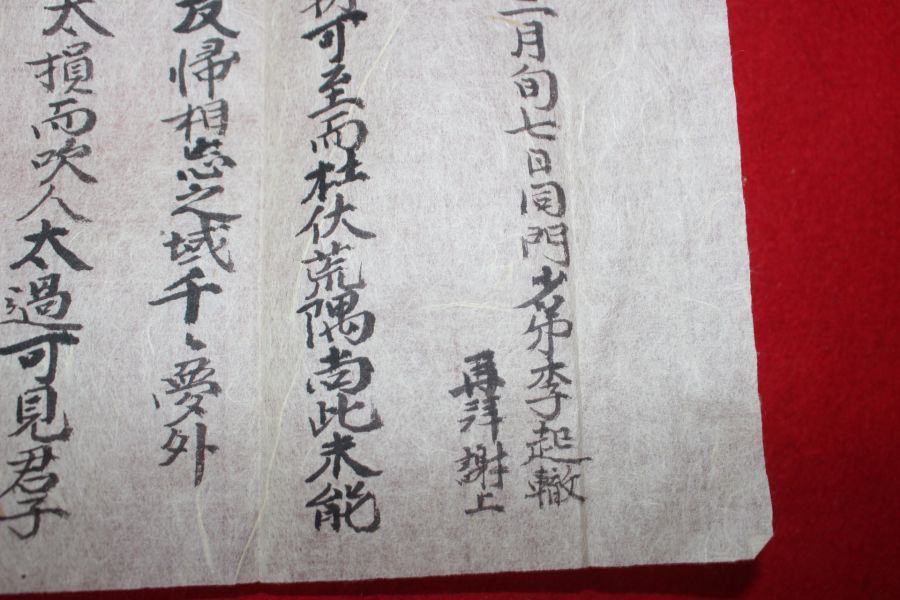 二月旬七日同門少弟李起轍
再拜謝上
可至而杜伏荒隅尚此未能
反帰相忘之域千〻夢外
太損而吹人太過可見君子